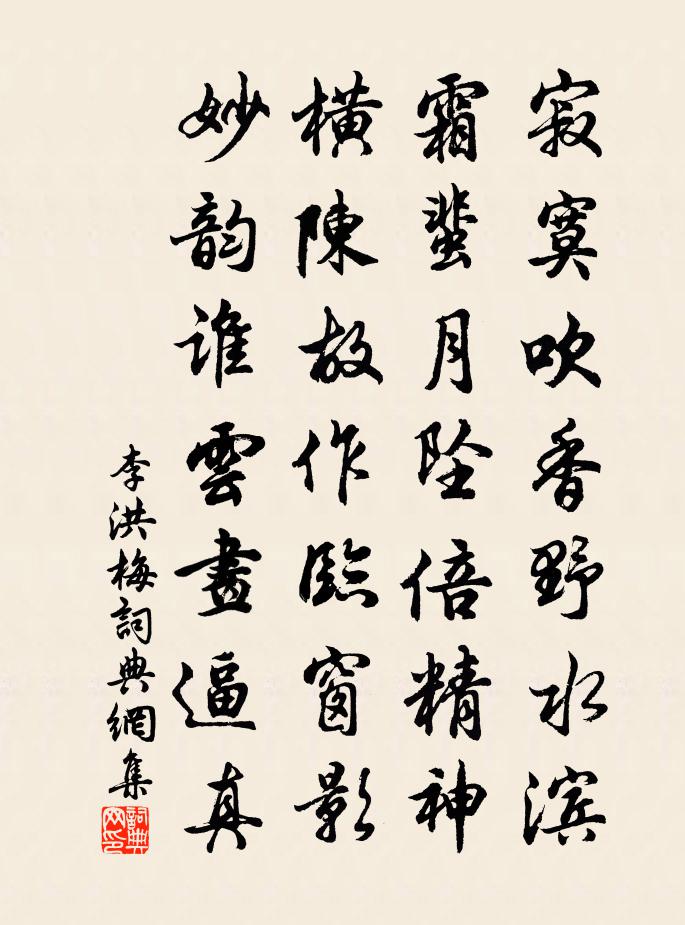 寂寞吹香野水滨
霜蜚月坠倍精神
横陳故作臨窗影
妙韵谁雲畫逼真
李洪梅詞典網集
詞典网印